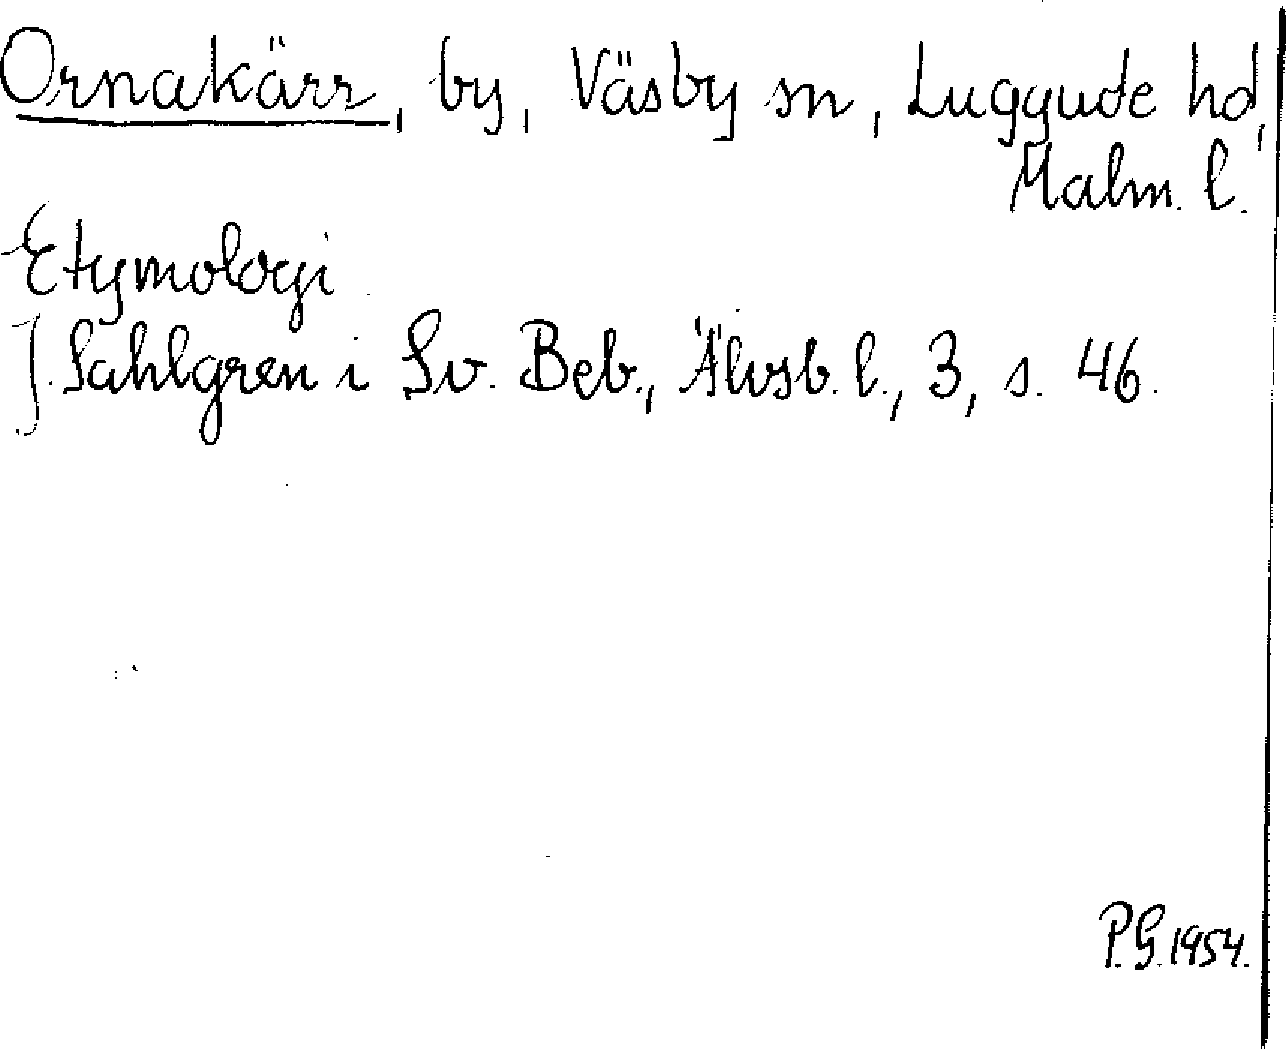 Ornakärr, by, Väsby sn, Luggude hd,
Malm. l.
Etymologi
J. Sahlgren i Sv. Beb., Älvsb. l., 3, s. 46.
P.G. 1954.